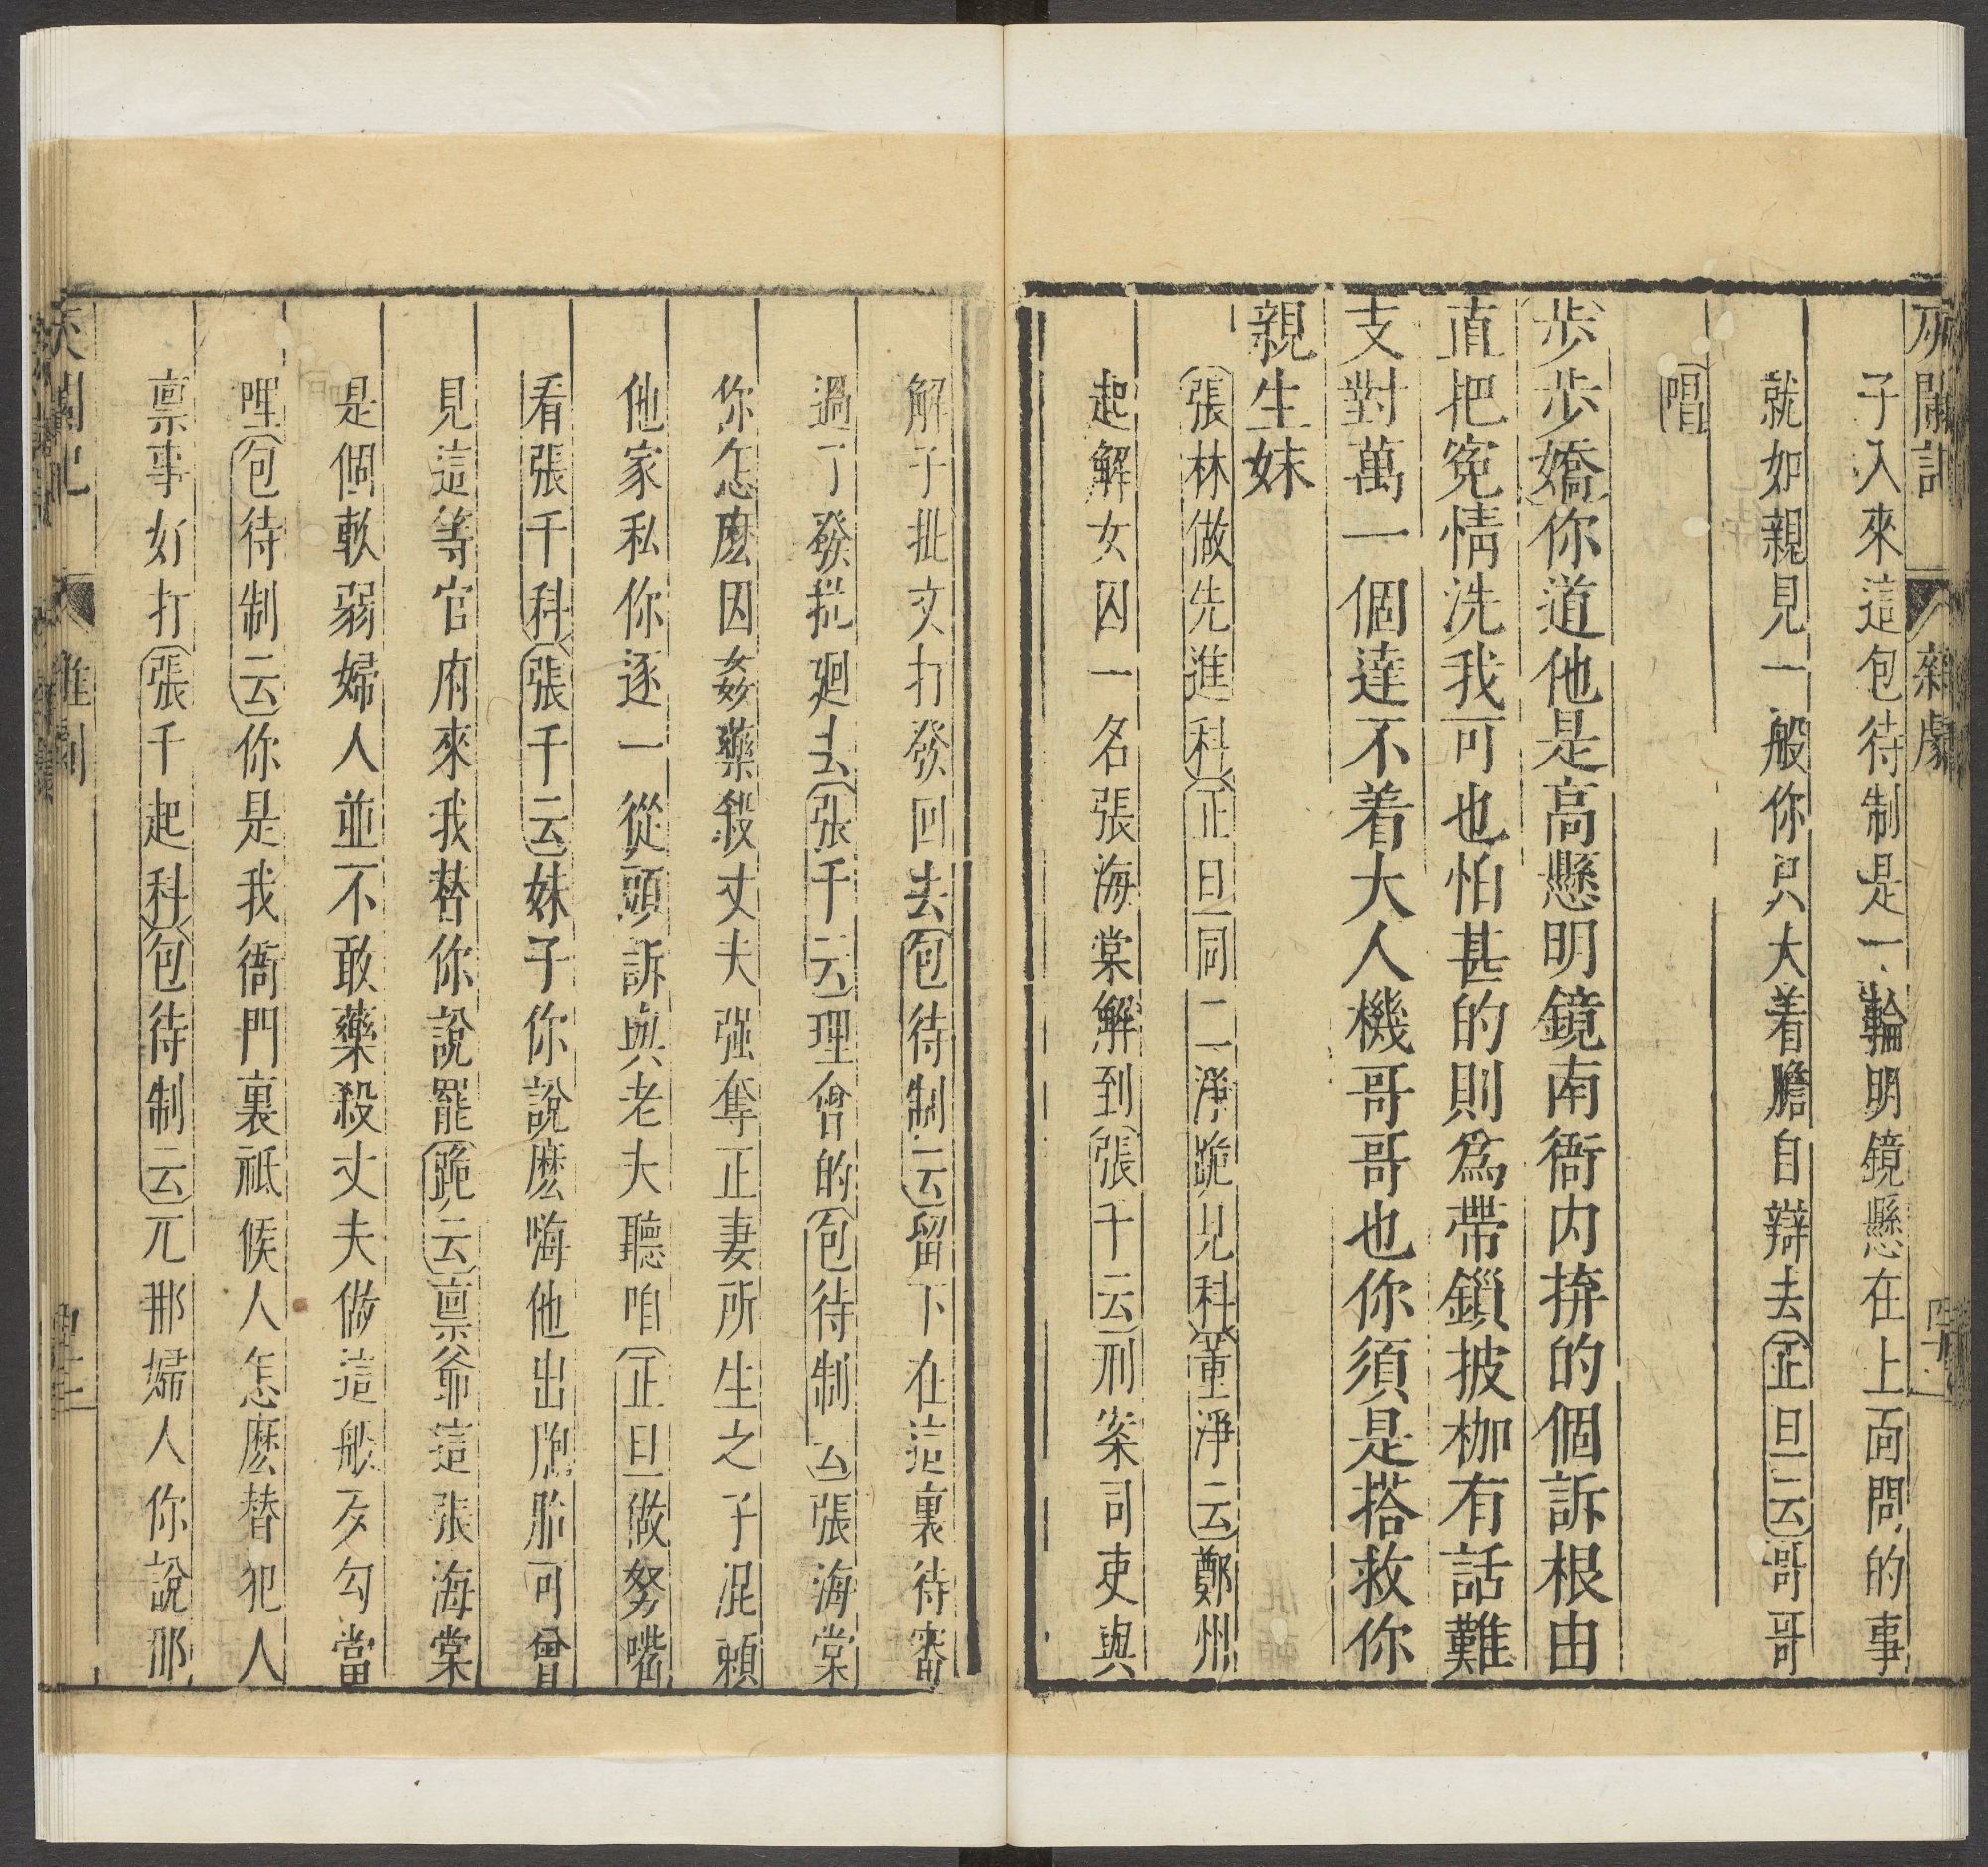 灰闌記 雜劇
子入來這包待制是一輪明鏡懸在上面問的事
就如親見一般你只大着膽自辯去正旦云哥哥
唱
步步嬌你道他是高懸明鏡南衙内拚的個訴根由
直把寃情洗我可也怕甚的則爲帶鎖披枷有話難
支對萬一個達不着大人機哥哥也你須是搭救你
親生妹
張林做先進科正旦同二淨跪見科董淨云鄭州
起解女囚一名張海棠解到張千云刑案司吏與
解子批文打發回去包待制云留下在這裏待審
過了發批廻去張千云理會的包待制云張海棠
你怎麽因姦藥殺丈夫强奪正妻所生之子混賴
他家私你逐一從頭訴與老夫聽咱正旦做努嘴
看張千科張千云妹子你說麽嗨他出胞胎可曾
見這等官府來我替你說罷跪云禀爺這張海棠
是個軟弱婦人並不敢藥殺丈夫做這般歹勾當
哩包待制云你是我衙門裏祗候人怎麽替犯人
禀事好打張千起科包待制云兀那婦人你說那
灰闌記 雜劇